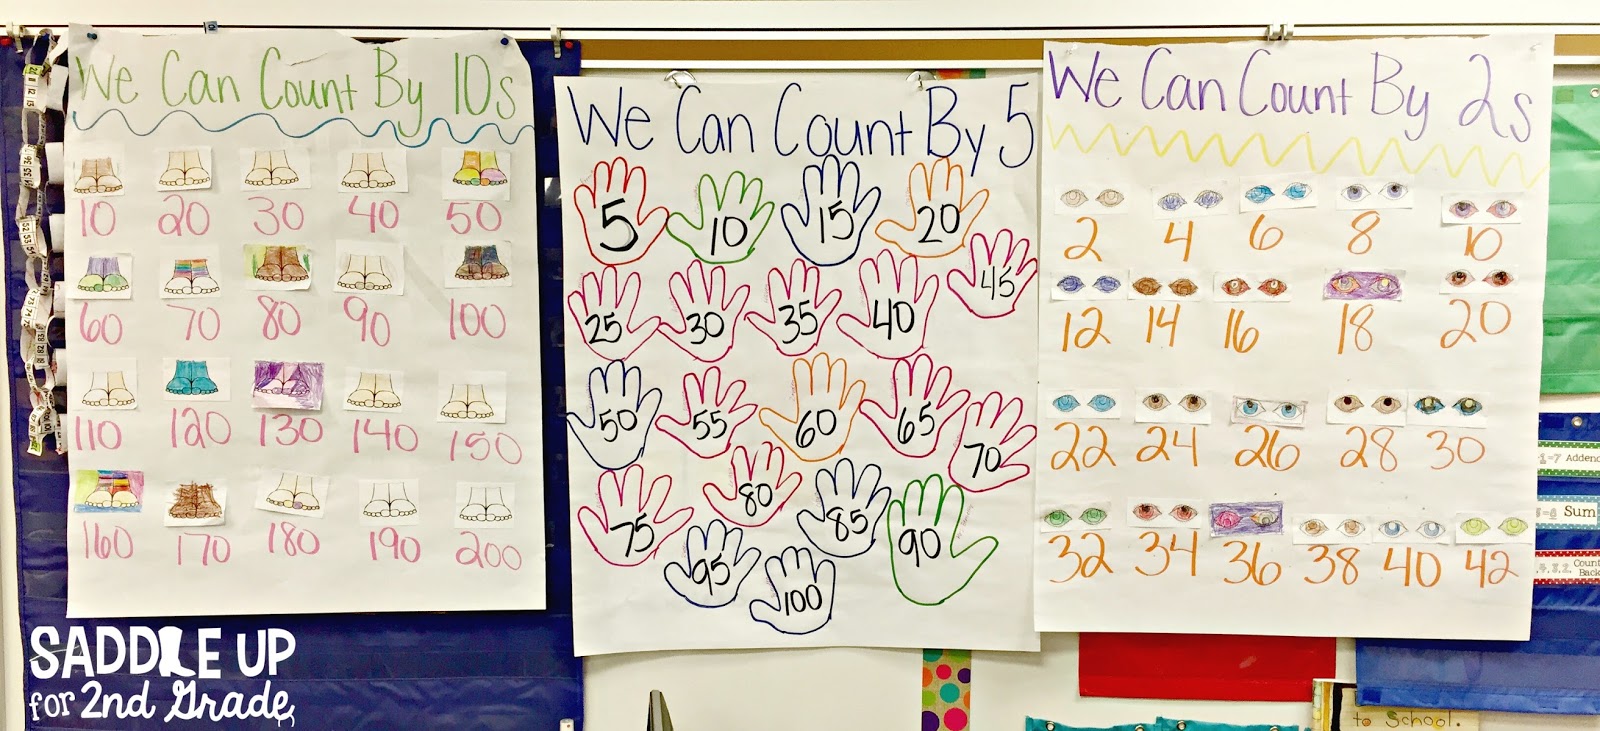 We Can Count By 10s
10 20 30 40 50
60 70 80 90 100
110 120 130 140 150
160 170 180 190 200
We Can Count By 5
5 10 15 20
25 30 35 40 45
50 55 60 65 70
75 80 85 90
95 100
We Can Count By 2s
2 4 6 8 10
12 14 16 18 20
22 24 26 28 30
32 34 36 38 40 42
Sum
Count
Back
to School.
SADDLE UP
for 2nd Grade